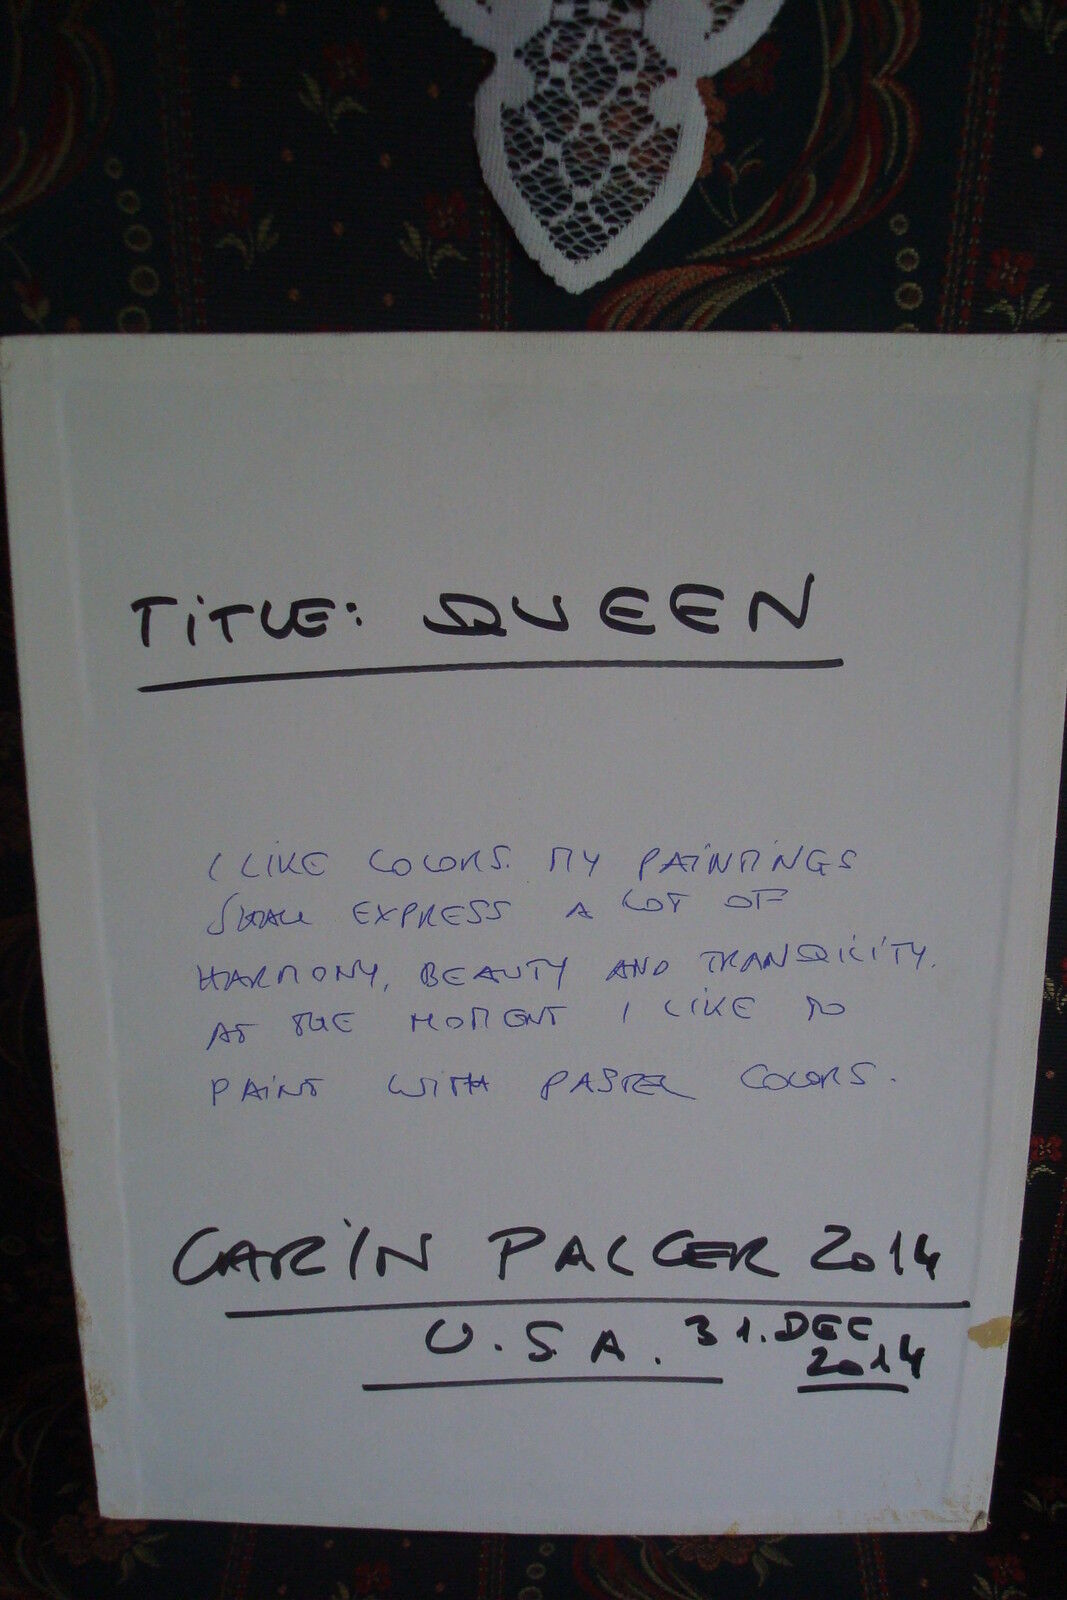 TiTLE: QUEEN
I LIKE COLORS. MY PAiNTiNGS
SHALL EXPRESS A LOT OF
HARMONY, BEAUTY AND TRANQILITY.
AT THE MOMENT I LiKE TO
PAiNT WiTH PASTEL COLORS.
CARiN PALCER 2014
U.S.A. 31. DEC
2014